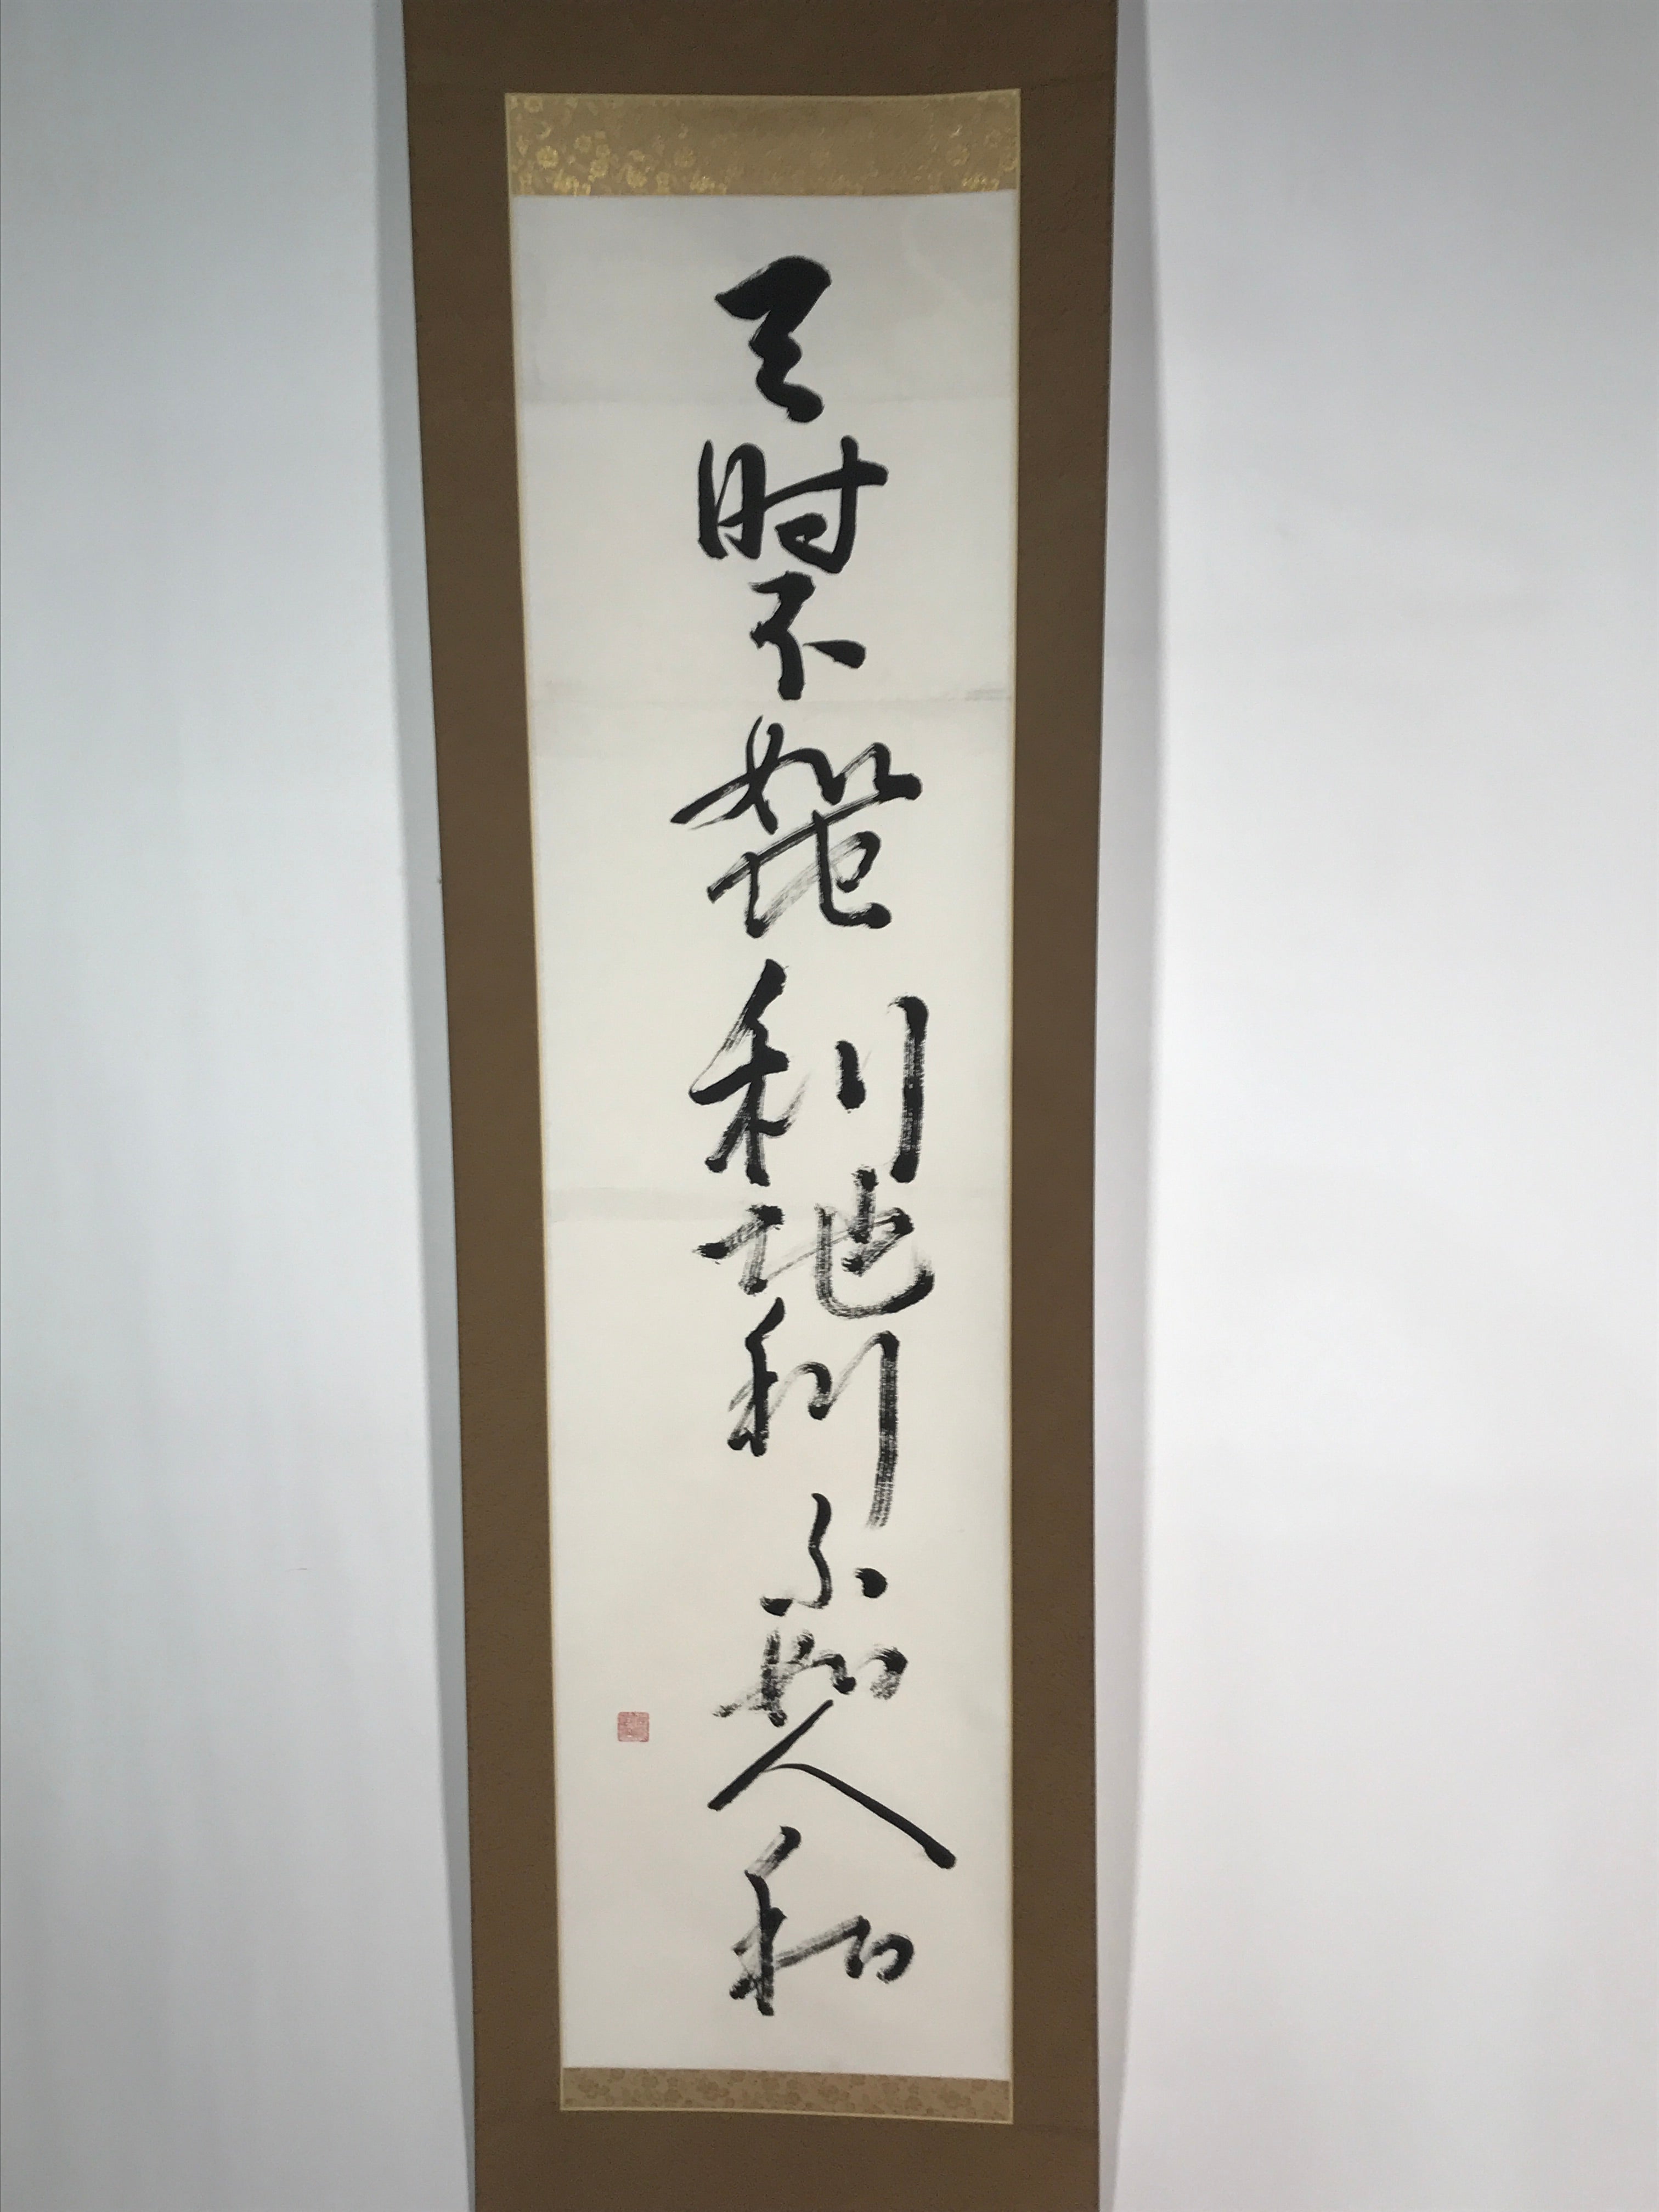 天时不如地利地利不如人和